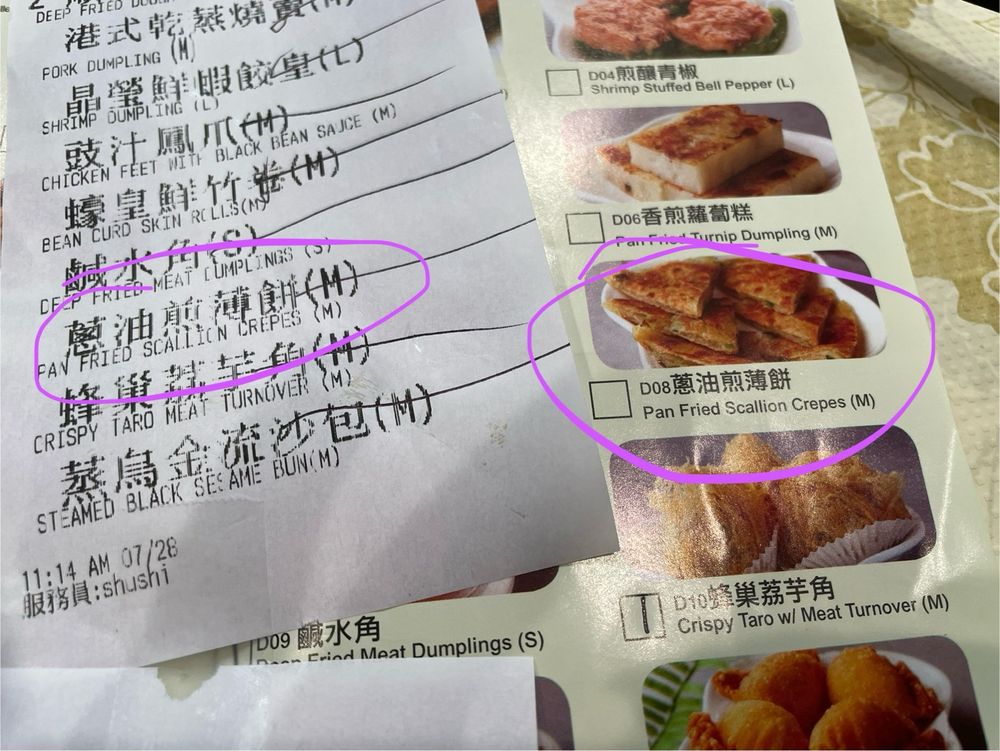 DEEP FRIED
港式乾蒸燒賣(M)
PORK DUMPLING (M)
晶瑩鮮蝦餃皇(L)
SHRIMP DUMPLING (L)
豉汁鳳爪(M)
CHICKEN FEET WITH BLACK BEAN SAUCE (M)
蠔皇鮮竹卷(M)
BEAN CURD SKIN ROLLS(M)
鹹水角(S)
DEEP FRIED MEAT DUMPLINGS (S)
蔥油煎薄餅(M)
PAN FRIED SCALLION CREPES (M)
蜂巢荔芋角(M)
CRISPY TARO MEAT TURNOVER (M)
蒸烏金流沙包(M)
STEAMED BLACK SESAME BUN(M)
11:14 AM 07/28
服務員:shushi
D04煎釀青椒
Shrimp Stuffed Bell Pepper (L)
D06香煎蘿蔔糕
Pan Fried Turnip Dumpling (M)
D08蔥油煎薄餅
Pan Fried Scallion Crepes (M)
D10蜂巢荔芋角
Crispy Taro w/ Meat Turnover (M)
D09 鹹水角
Deep Fried Meat Dumplings (S)